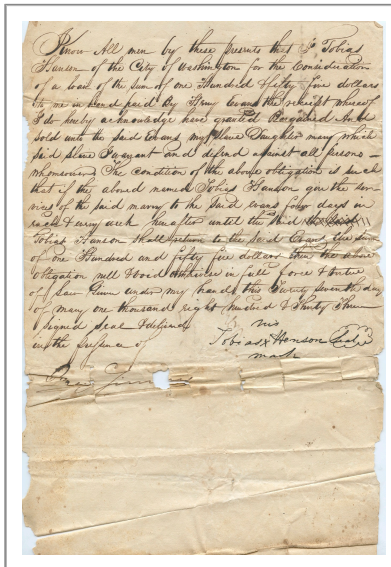 Know All men by these presents that I Tobias
Hanson of the City of Washington for the Consideration
of a loan of the sum of one Hundred & fifty five dollars
to me in hand paid By Henry Evans the receipt whereof
I do hereby acknowledge have granted Bargained And
sold unto the said Evans my slave Daughter mary which
said slave I warant and defend against all persons —
whomsoever The condition of the above obligation is such
that if the above named Tobias Hanson give the ser-
vices of the said marry to the said Evans four days in
each & every week hereafter until the said the said
Tobias Hanson shall return to the said Evans the sum
of one Hundred and fifty five dollars then the above
obligation null & void otherwise in full force & virtue
of Law Given under my hand this Twenty seventh day
of may one thousand eight hundred & thirty Three
signed seal & deliverd
in the presence of
his
Tobias x Henson Seal
mark